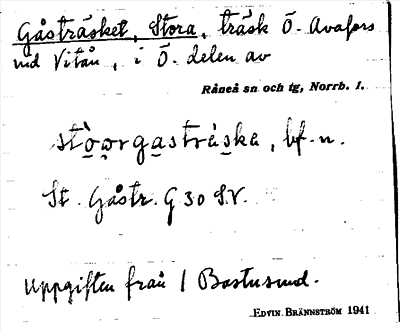 Gåsträsket, Stora, träsk Ö. Avafors
vid Vitån, i Ö. delen av
Råneå sn och tg, Norrb. l.
bf. n.
St. Gåstr. G 30 S.V.
Uppgiften från 1 Bastusund.
EDVIN BRÄNNSTRÖM 1941